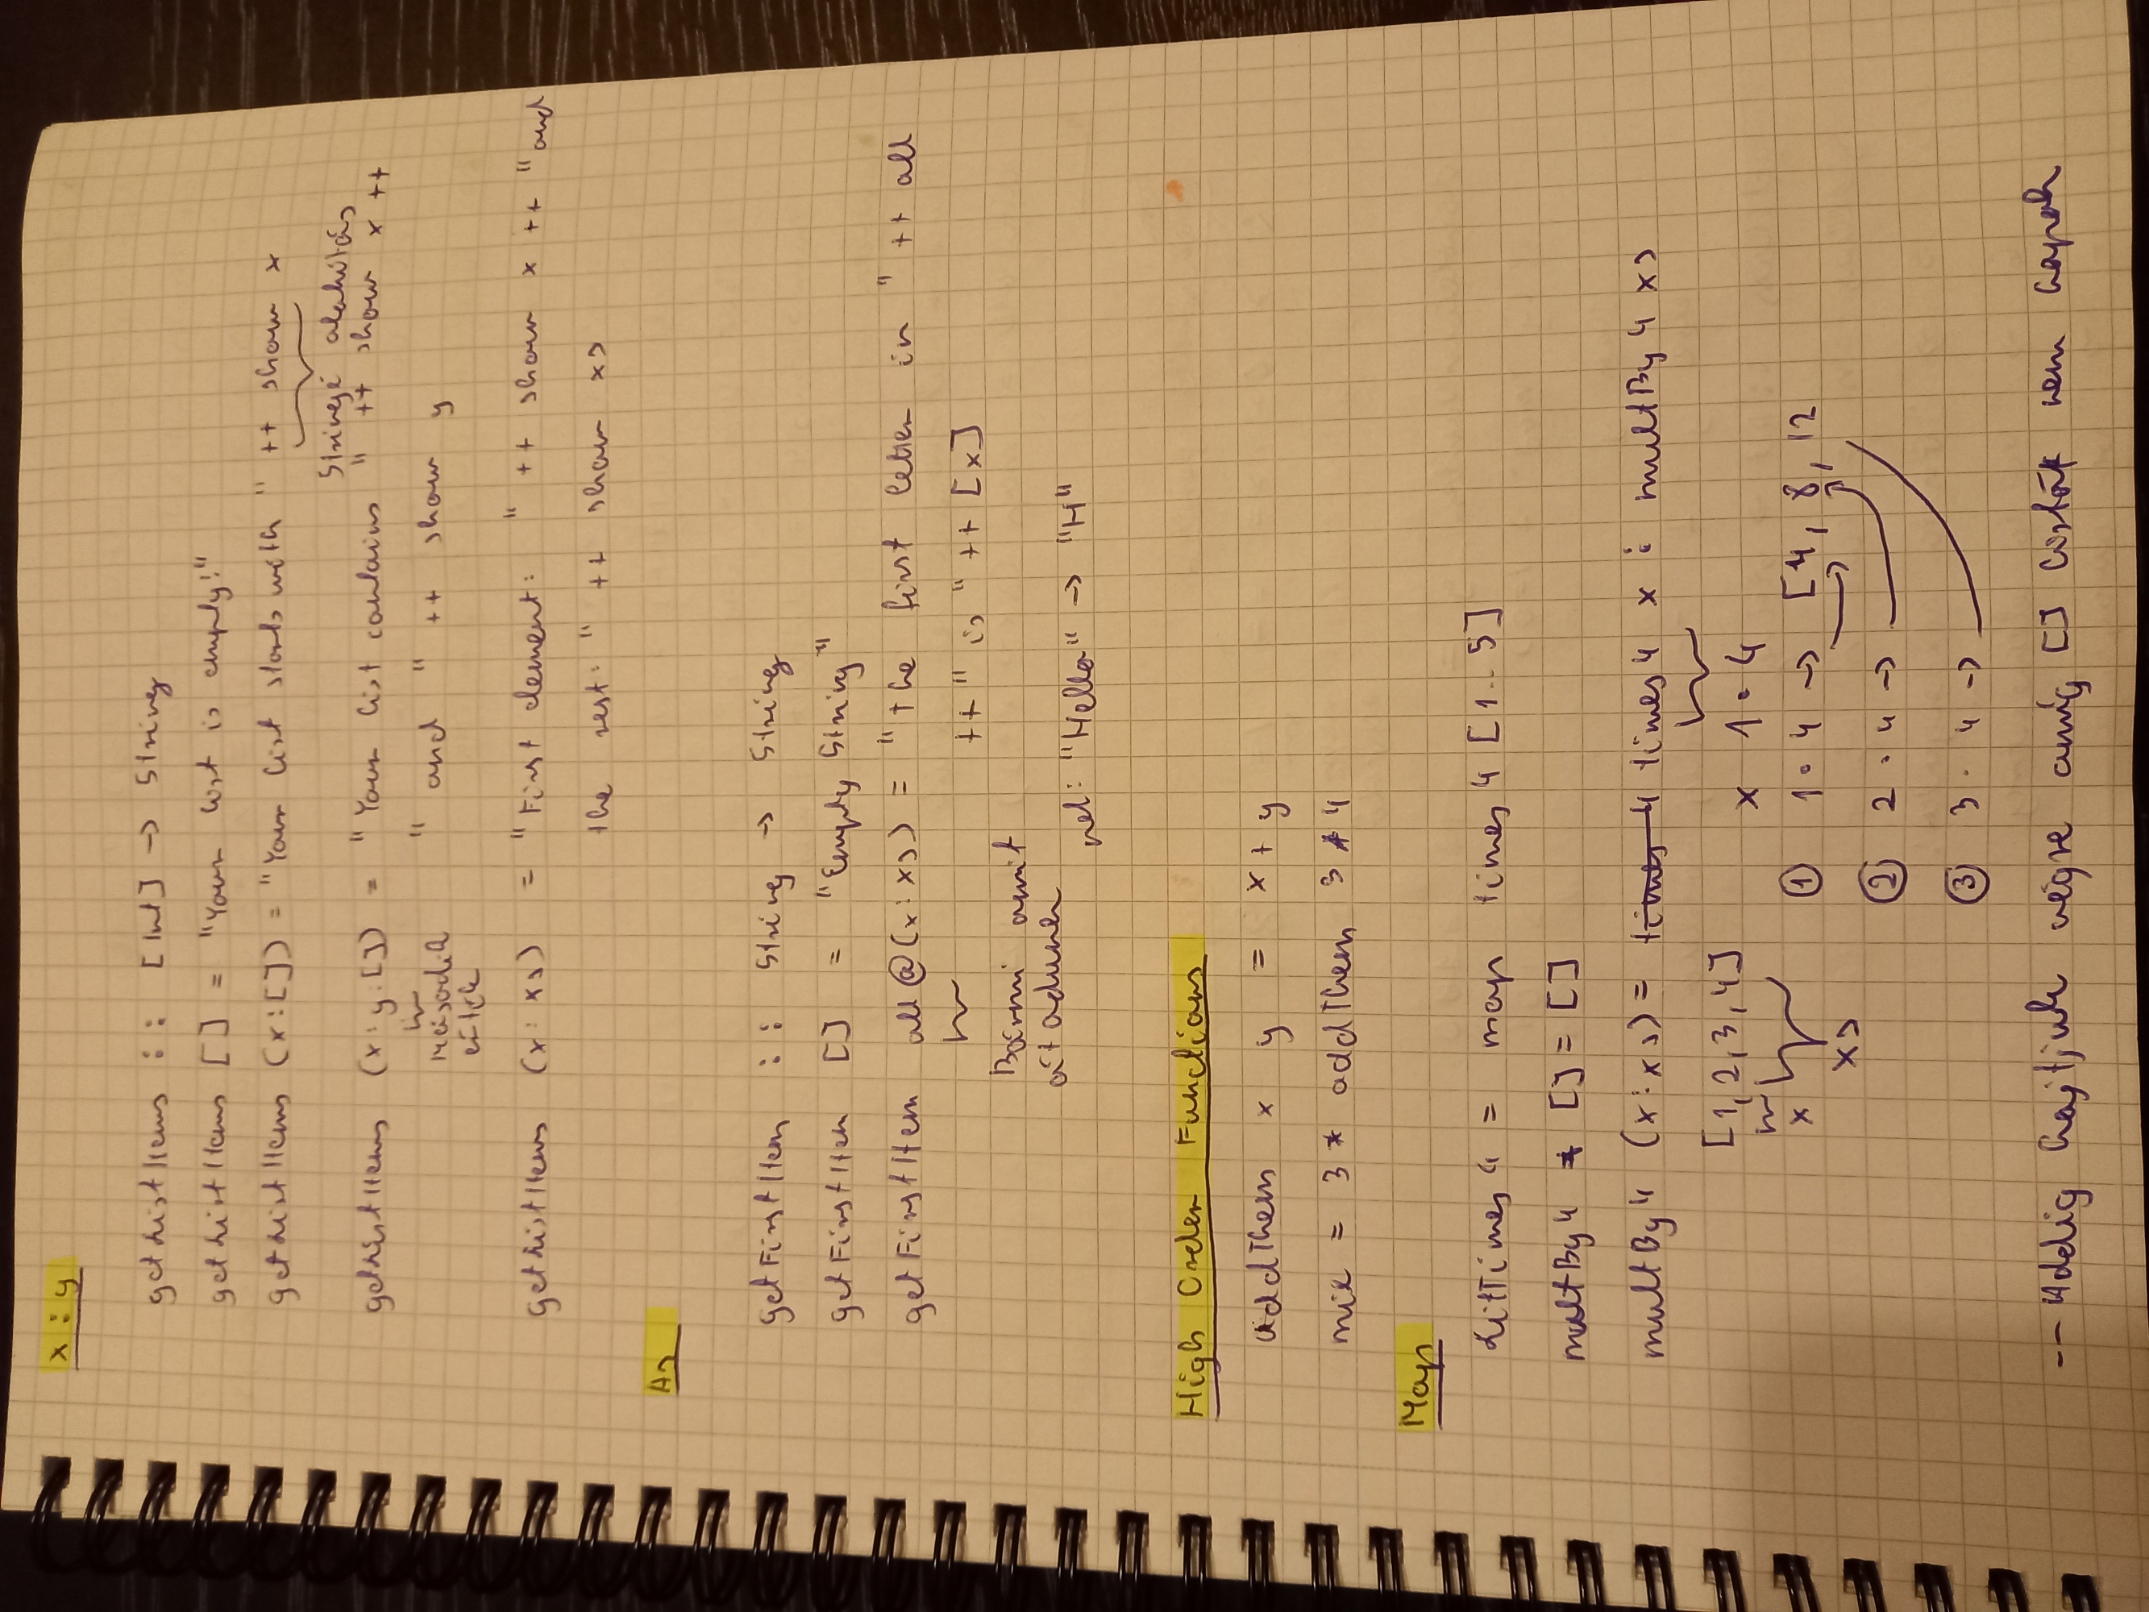 x : y
getListItems :: [Int] -> String
getListItems [] = "Your list is empty!"
getListItems (x:[]) = "Your list starts with " ++ show x
Stringé alakítás
getListItems (x:y:[]) = "Your list contains " ++ show x ++
második " and " ++ show y
érték
getListItems (x:xs) = "First element: " ++ show x ++ "and
the rest: " ++ show xs
As
getFirstItem :: String -> String
getFirstItem [] = "Empty String"
getFirstItem all@(x:xs) = "the first letter in " ++ all
++ " is " ++ [x]
Bármi amit
átadunk
pel: "Hello" -> "H"
High Order Functions
addThem x y = x + y
mix = 3 * addThem 3 4
Map
LitTimes4 = map times4 [1..5]
multBy4 [] = []
multBy4 (x:xs) = times4 times4 x : multBy4 xs
[1,2,3,4] x 1·4
x ① 1·4 -> [4, 8, 12
xs
② 2·4 ->
③ 3·4 ->
-- Addig hajtjuk végre amíg [] listát nem kapok